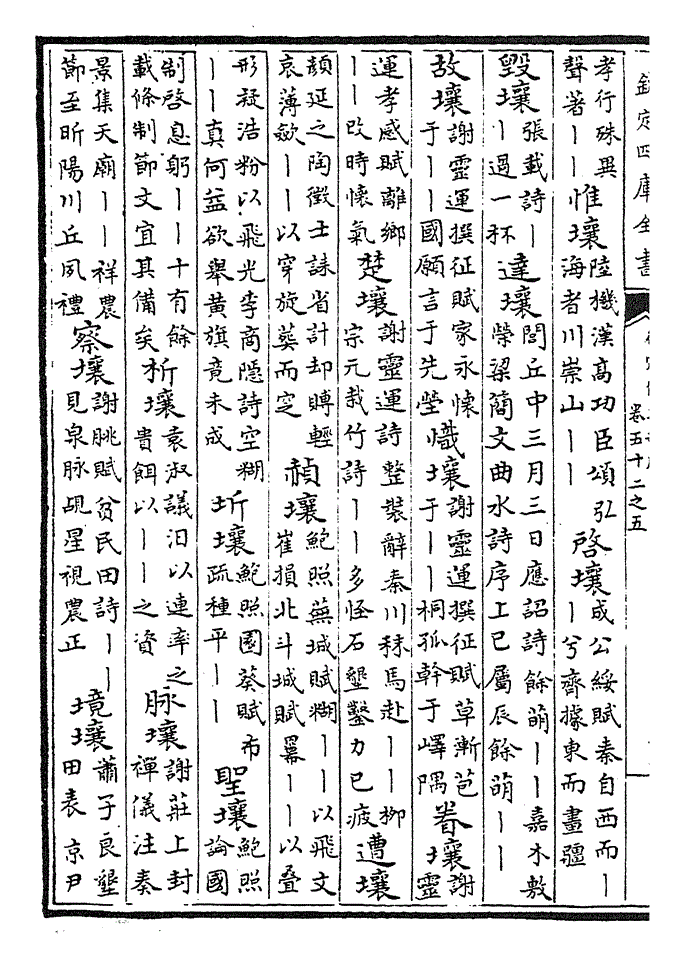 欽定四庫全書
卷五十二之五
孝行殊異聲著丨丨 惟壤 陸機漢高功臣頌弘海者川崇山丨丨 啓壤 成公綏賦秦自西而丨丨兮齊據東而畫疆
毀壤 張載詩丨丨過一抔 達壤 閭丘中三月三日應詔詩餘萌丨丨嘉木敷榮梁簡文曲水詩序上巳屬辰餘萌丨丨
故壤 謝靈運撰征賦家永懷于丨丨國願言于先塋 熾壤 謝靈運撰征賦草漸苞于丨丨桐孤幹于嶧隅 眷壤 謝靈
運孝感賦離鄉丨丨改時懷氣 楚壤 謝靈運詩整裝辭秦川秣馬赴丨丨柳宗元栽竹詩丨丨多怪石墾鑿力已疲 遭壤
顏延之陶徵士誄省訃却賻輕哀薄斂丨丨以穿旋葬而窆 赬壤 鮑照蕪城賦糊丨丨以飛文崔損北斗城賦冪丨丨以叠
形凝浩粉以飛光李商隱詩空糊丨丨真何益欲舉黃旗竟未成 圻壤 鮑照園葵賦布疏種平丨丨 聖壤 鮑照論國
制啓息躬丨丨十有餘載條制節文宜其備矣 析壤 袁淑議汨以連率之貴餌以丨丨之資 脉壤 謝莊上封禪儀注奏
景集天廟丨丨祥農節至昕陽川丘夙禮 察壤 謝朓賦貧民田詩丨丨見泉脉覘星視農正 境壤 蕭子良墾田表京尹